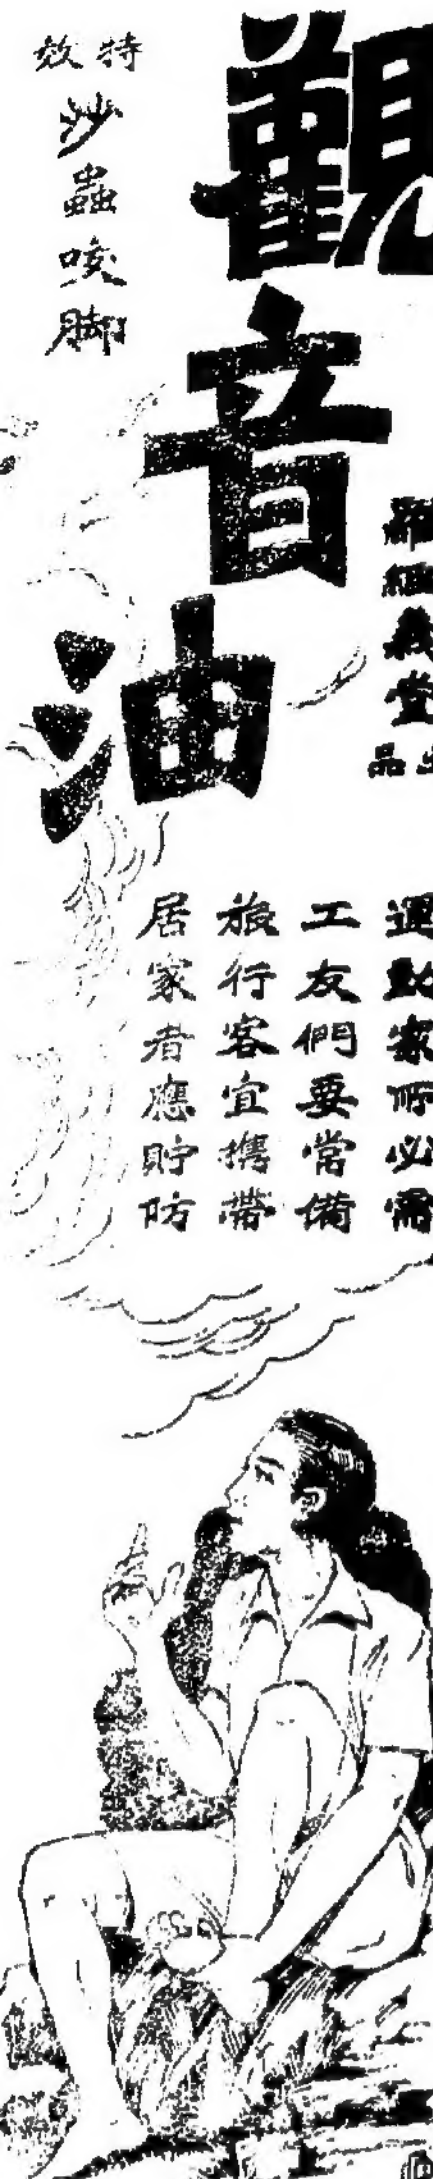 觀音油
特效
沙蟲咬脚
義堂
出品
運動家所必需
工友們要常備
旅行客宜携帶
居家者應貯防